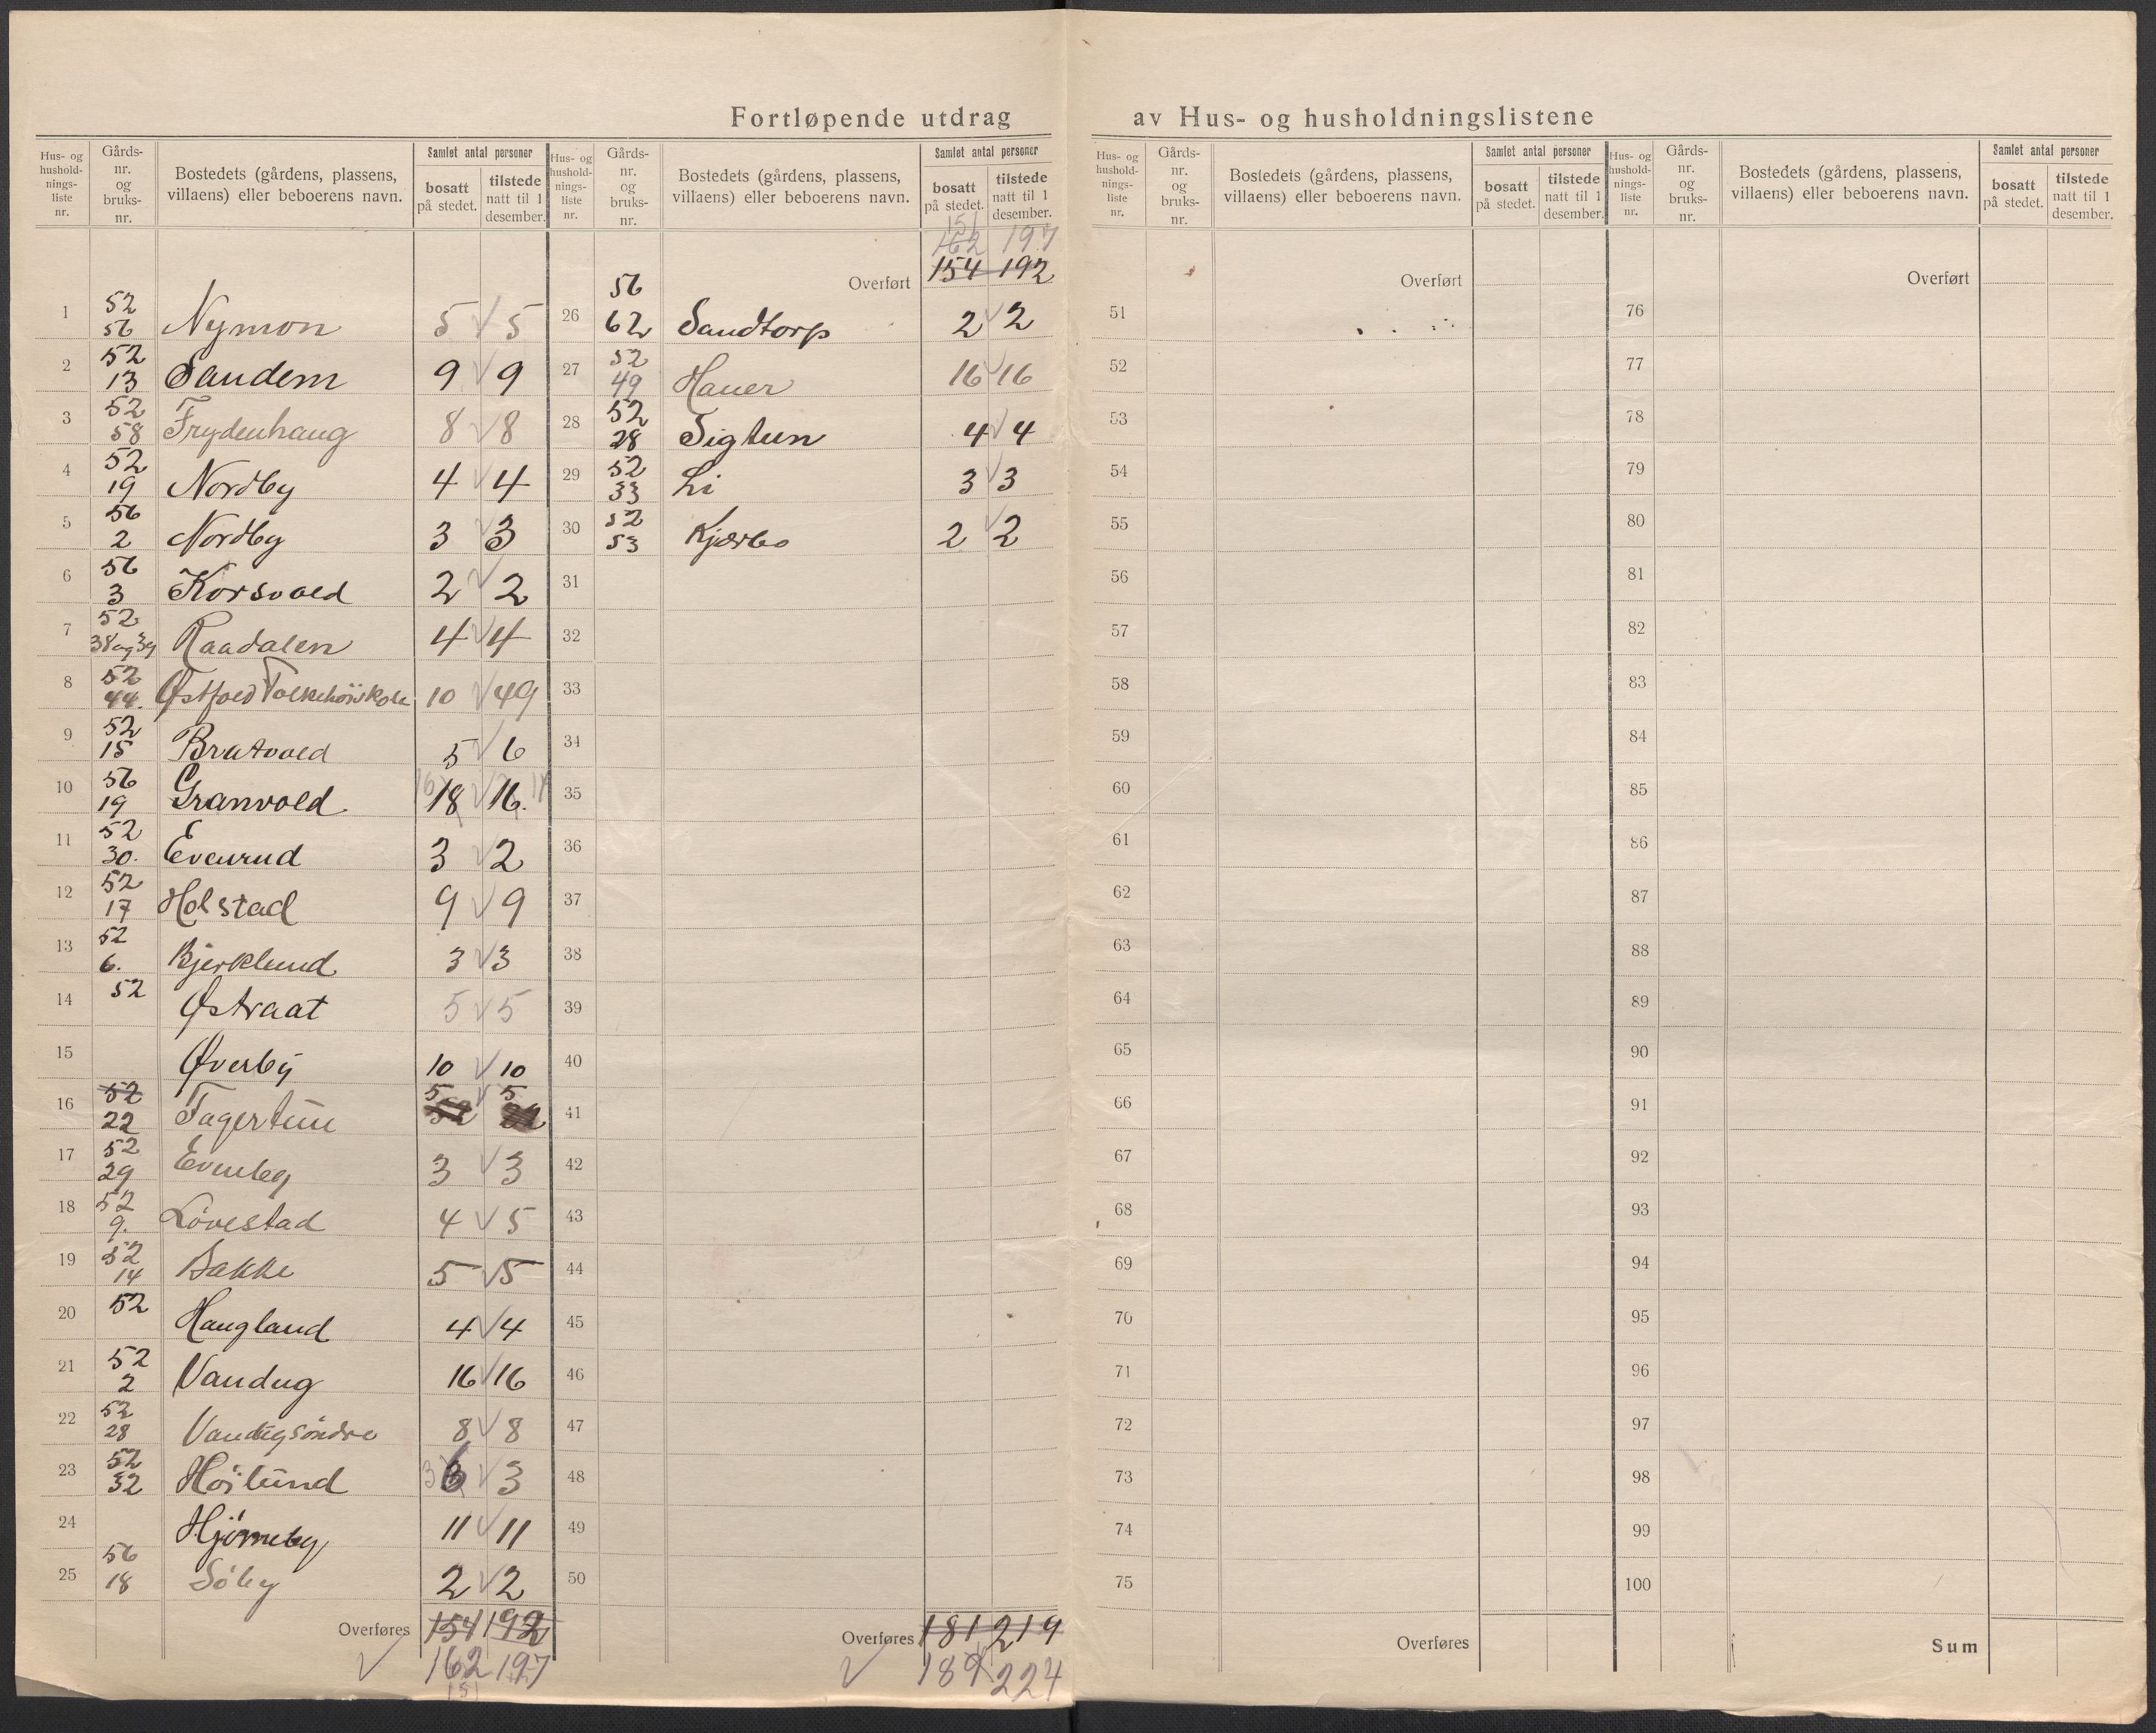 Fortløpende utdrag av Hus- og husholdningslistene
Hus- og hushold-nings-liste nr. Gårds-nr. og bruks-nr. Bostedets (gårdens, plassens, villaens) eller beboerens navn. Samlet antal personer bosatt på stedet. tilstede natt til 1 desember.
1 52 56 Nymon 5 √ 5
2 52 13 Sandem 9 √ 9
3 52 58 Frydenhaug 8 √ 8
4 52 19 Nordby 4 √ 4
5 56 2 Nordby 3 √ 3
6 56 3 Korsvold 2 √ 2
7 52 38 og 39 Raadalen 4 √ 4
8 52 44. Østfold Folkehöiskole 10 √ 49
9 52 15 Bratvold 5 √ 6
10 56 19 Granvold 18 √ 16.
11 52 30. Evenrud 3 √ 2
12 52 17 Holstad 9 √ 9
13 52 6. Bjerklund 3 √ 3
14 52 Østraat 5 √ 5
15 Øverby 10 √ 10
16 52 22 Fagertun 5 √ 5
17 52 29 Evenby 3 √ 3
18 52 9. Lövestad 4 √ 5
19 52 14 Bakke 5 √ 5
20 52 Haugland 4 √ 4
21 52 2 Vandug 16 √ 16
22 52 28 Vandug söndre 8 √ 8
23 52 32 Höilund 3 √ 3
24 Hjörneby 11 √ 11
25 56 18 Söby 2 √ 2
Overføres 154 192
√ 162 197
151
Hus- og hushold-nings-liste nr. Gårds-nr. og bruks-nr. Bostedets (gårdens, plassens, villaens) eller beboerens navn. Samlet antal personer bosatt på stedet. tilstede natt til 1 desember.
151
162 197
Overført 154 192
26 56 62 Sandtorp 2 √ 2
27 52 49 Hauer 16 √ 16
28 52 28 Sigtun 4 √ 4
29 52 33 Li 3 √ 3
30 52 53 Kjærbo 2 √ 2
31
32
33
34
35
36
37
38
39
40
41
42
43
44
45
46
47
48
49
50
Overføres 181 219
√ 189 224
Hus- og hushold-nings-liste nr. Gårds-nr. og bruks-nr. Bostedets (gårdens, plassens, villaens) eller beboerens navn. Samlet antal personer bosatt på stedet. tilstede natt til 1 desember.
Overført
51
52
53
54
55
56
57
58
59
60
61
62
63
64
65
66
67
68
69
70
71
72
73
74
75
Overføres
Hus- og hushold-nings-liste nr. Gårds-nr. og bruks-nr. Bostedets (gårdens, plassens, villaens) eller beboerens navn. Samlet antal personer bosatt på stedet. tilstede natt til 1 desember.
Overført
76
77
78
79
80
81
82
83
84
85
86
87
88
89
90
91
92
93
94
95
96
97
98
99
100
Sum